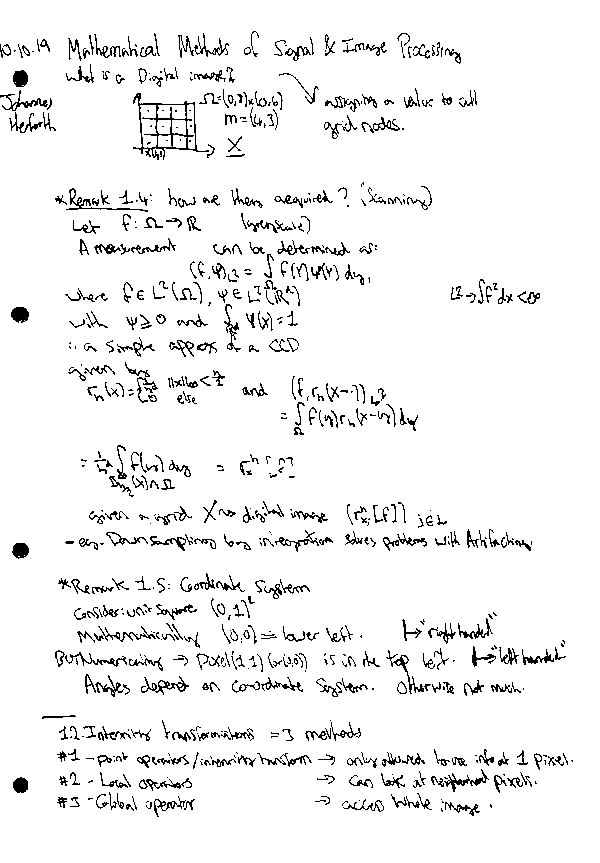 10.10.19 Mathematical Methods of Signal & Image Processing
What is a Digital image?
Johannes
Ω=(0,8)x(0,6)
m=(4,3)
X
assigning a value to all
grid nodes.
*Remark 1.4: how are they acquired? (Scanning)
Let f: Ω → ℝ (grayscale)
A measurement can be determined as:
(f,Ψ)L² = ∫Ω f(y)Ψ(y) dy,
where f ∈ L²(Ω), Ψ ∈ L²(ℝᵈ)
L² → ∫f² dx < ∞
with Ψ ≥ 0 and ∫ Ψ(x) = 1
∴ a simple approx of a CCD
given by
else and (f, rₕ(x-·))L²
= ∫Ω f(y) rₕ(x-y) dy
∫ f(y) dy =
given a grid X digital image j∈
- eg. Downsampling by integration solves problems with Artifacting.
*Remark 1.5: Coordinate System
Consider: unit square (0,1)²
Mathematically (0,0) = lower left. ↦ "right handed"
BUT Numerically → Pixel(1,1) (or(0,0)) is in the top left. ↦ "left handed"
Angles depend on coordinate system. Otherwise not much.
1.2. Intensity transformations = 3 methods
#1 - point operators/intensity transform → only allowed to use info at 1 pixel.
#2 - Local operators → can look at neighbourhood pixels.
#3 - Global operator → access whole image.